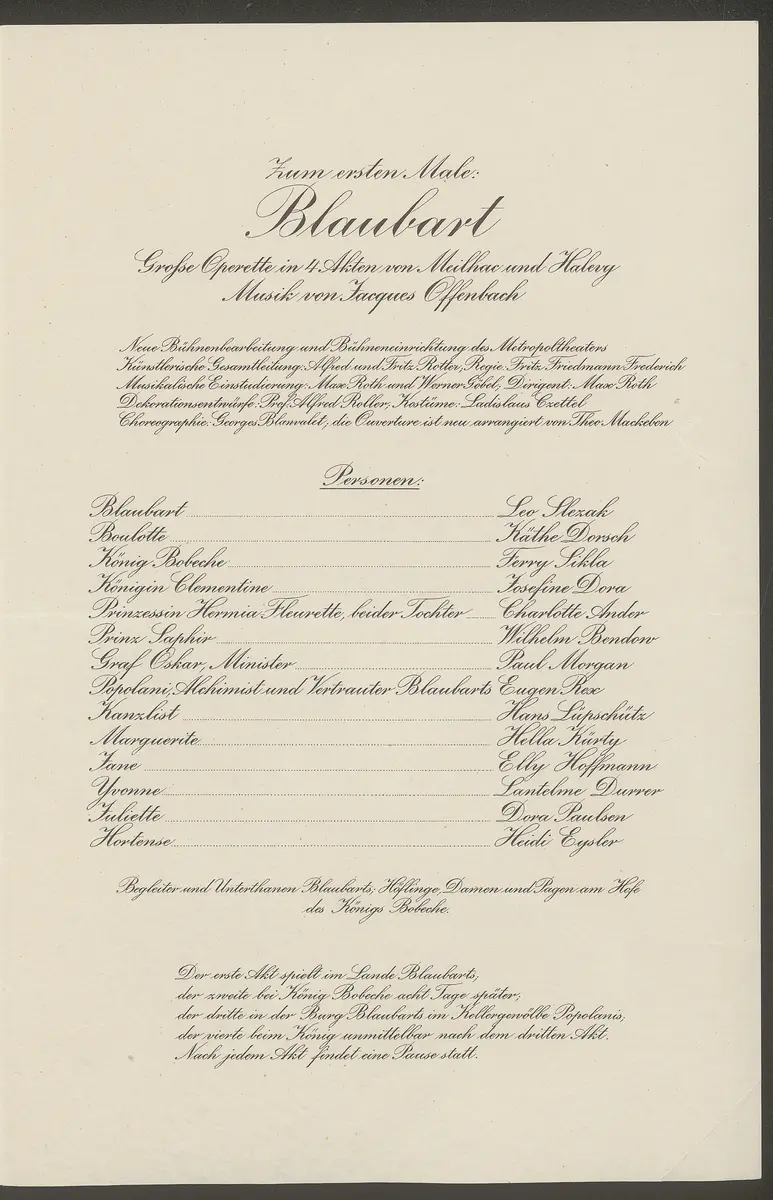 Zum ersten Male:
Blaubart
Große Operette in 4 Akten von Meilhac und Halevy
Musik von Jacques Offenbach
Neue Bühnenbearbeitung und Bühneneinrichtung des Metropoltheaters
Künstlerische Gesamtleitung: Alfred und Fritz Rotter, Regie: Fritz Friedmann-Frederich
Musikalische Einstudierung: Max Roth und Werner Göbel; Dirigent: Max Roth
Dekorationsentwürfe: Prof. Alfred Roller, Kostüme: Ladislaus Czettel
Choreographie: Georges Blanvalet; die Ouverture ist neu arrangiert von Theo Mackeben
Personen:
Blaubart Leo Slezak
Boulotte Käthe Dorsch
König Bobeche Ferry Sikla
Königin Clementine Josefine Dora
Prinzessin Hermia-Fleurette, beider Tochter Charlotte Ander
Prinz Saphir Wilhelm Bendow
Graf Oskar, Minister Paul Morgan
Popolani, Alchimist und Vertrauter Blaubarts Eugen Rex
Kanzlist Hans Lüpschütz
Marguerite Hella Kürty
Jane Elly Hoffmann
Yvonne Lantelme Durrer
Juliette Dora Paulsen
Hortense Heidi Eysler
Begleiter und Unterthanen Blaubarts; Höflinge, Damen und Pagen am Hofe
des Königs Bobeche.
Der erste Akt spielt im Lande Blaubarts;
der zweite bei König Bobeche acht Tage später;
der dritte in der Burg Blaubarts im Kellergewölbe Popolanis;
der vierte beim König unmittelbar nach dem dritten Akt.
Nach jedem Akt findet eine Pause statt.